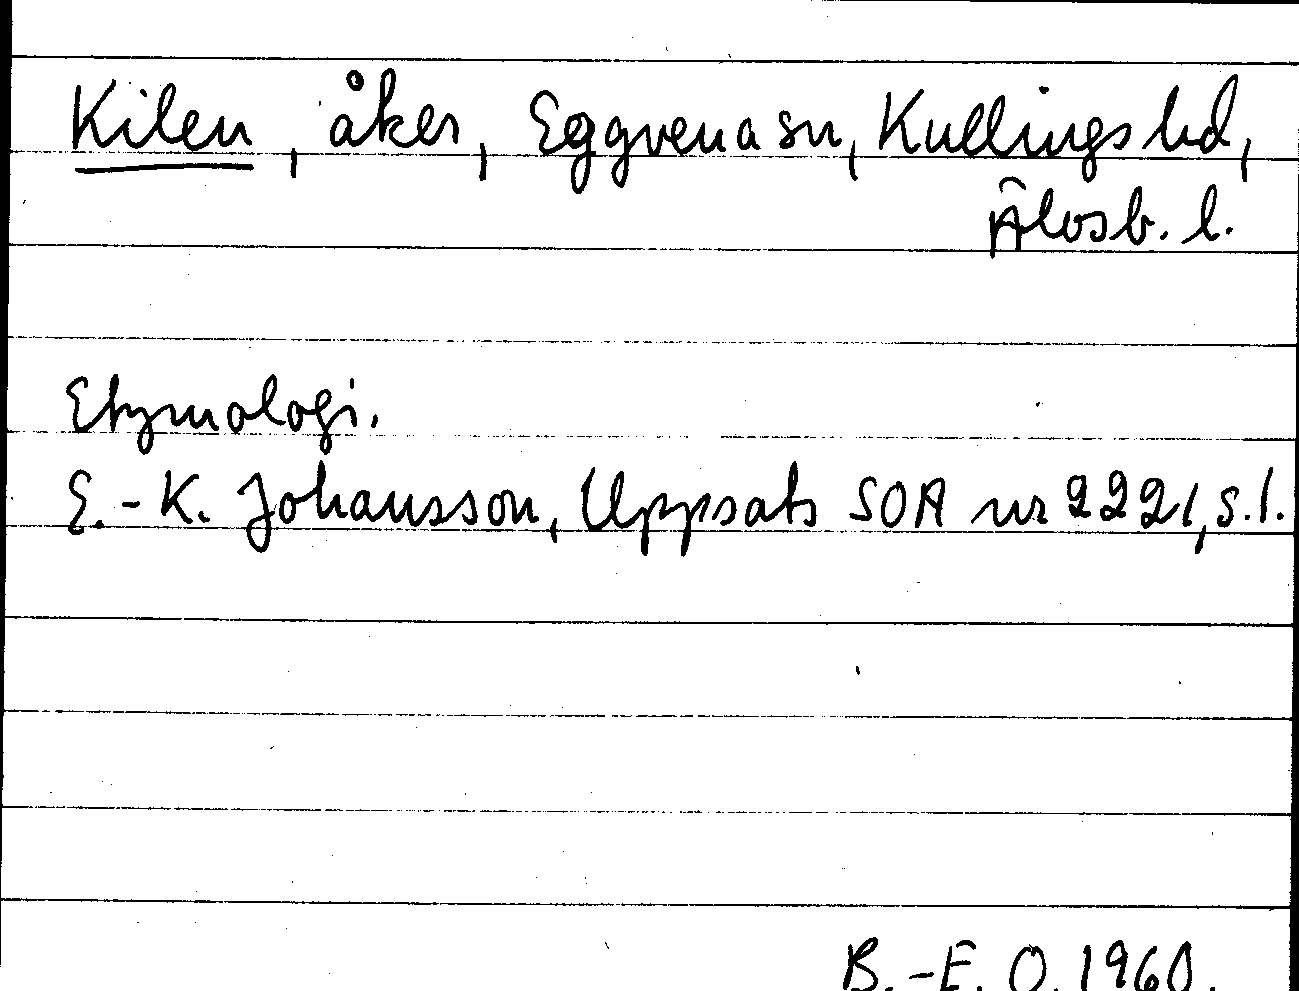 Kilen, åker, Eggvena sn, Kullings hd,
Älvsb. l.
Etymologi.
E.-K. Johansson, Uppsats SOA nr 2221, s. 1.
B.-E. O. 1960.